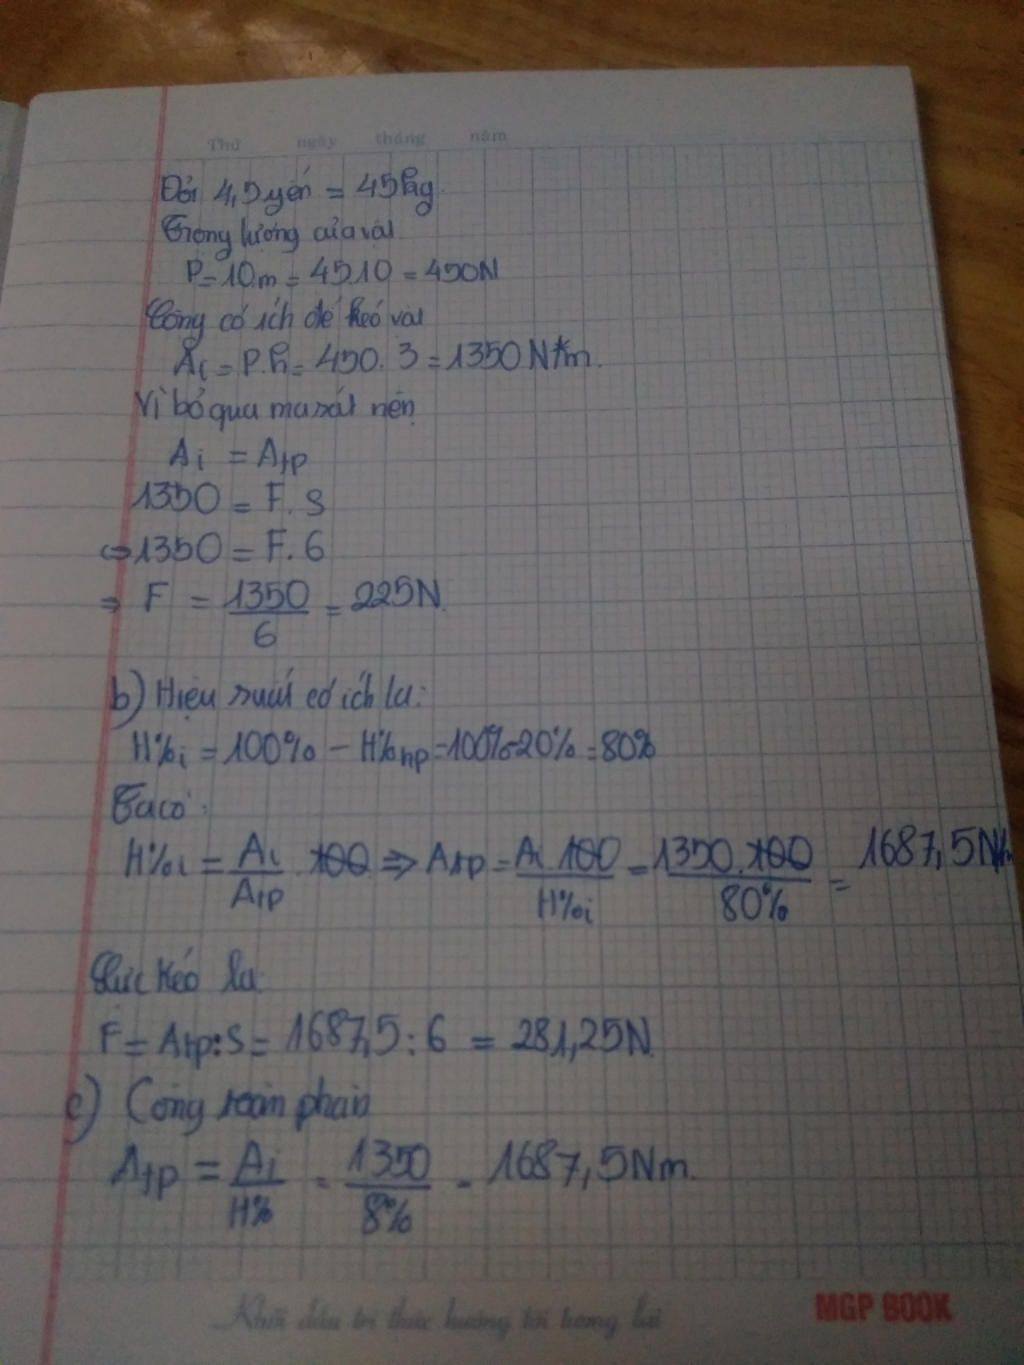 Thứ ngày tháng năm
Đổi 4,5 yến = 45kg
Trọng lượng của vật
P = 10.m = 45.10 = 450N
Công có ích để kéo vật
Ai = P.h = 450.3 = 1350 N*m.
Vì bỏ qua ma sát nên
Ai = Atp
1350 = F. S
⇔ 1350 = F. 6
⇒ F = 1350/6 = 225N.
b) Hiệu suất có ích là:
H%i = 100% - H%hp = 100% - 20% = 80%
Ta có:
H%i = Ai/Atp . 100 ⇒ Atp = Ai.100/H%i = 1350.100/80% = 1687,5Nm
Lực kéo là
F = Atp:S = 1687,5:6 = 281,25N.
c) Công toàn phần
Atp = Ai/H% = 1350/8% = 1687,5Nm.
Khởi đầu tri thức hướng tới tương lai
MGP BOOK